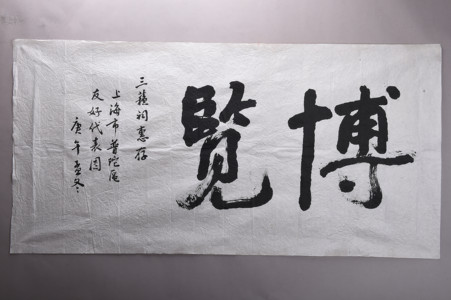 博覽
三蘇祠惠存
上海市普陀區
友好代表團
庚午孟冬